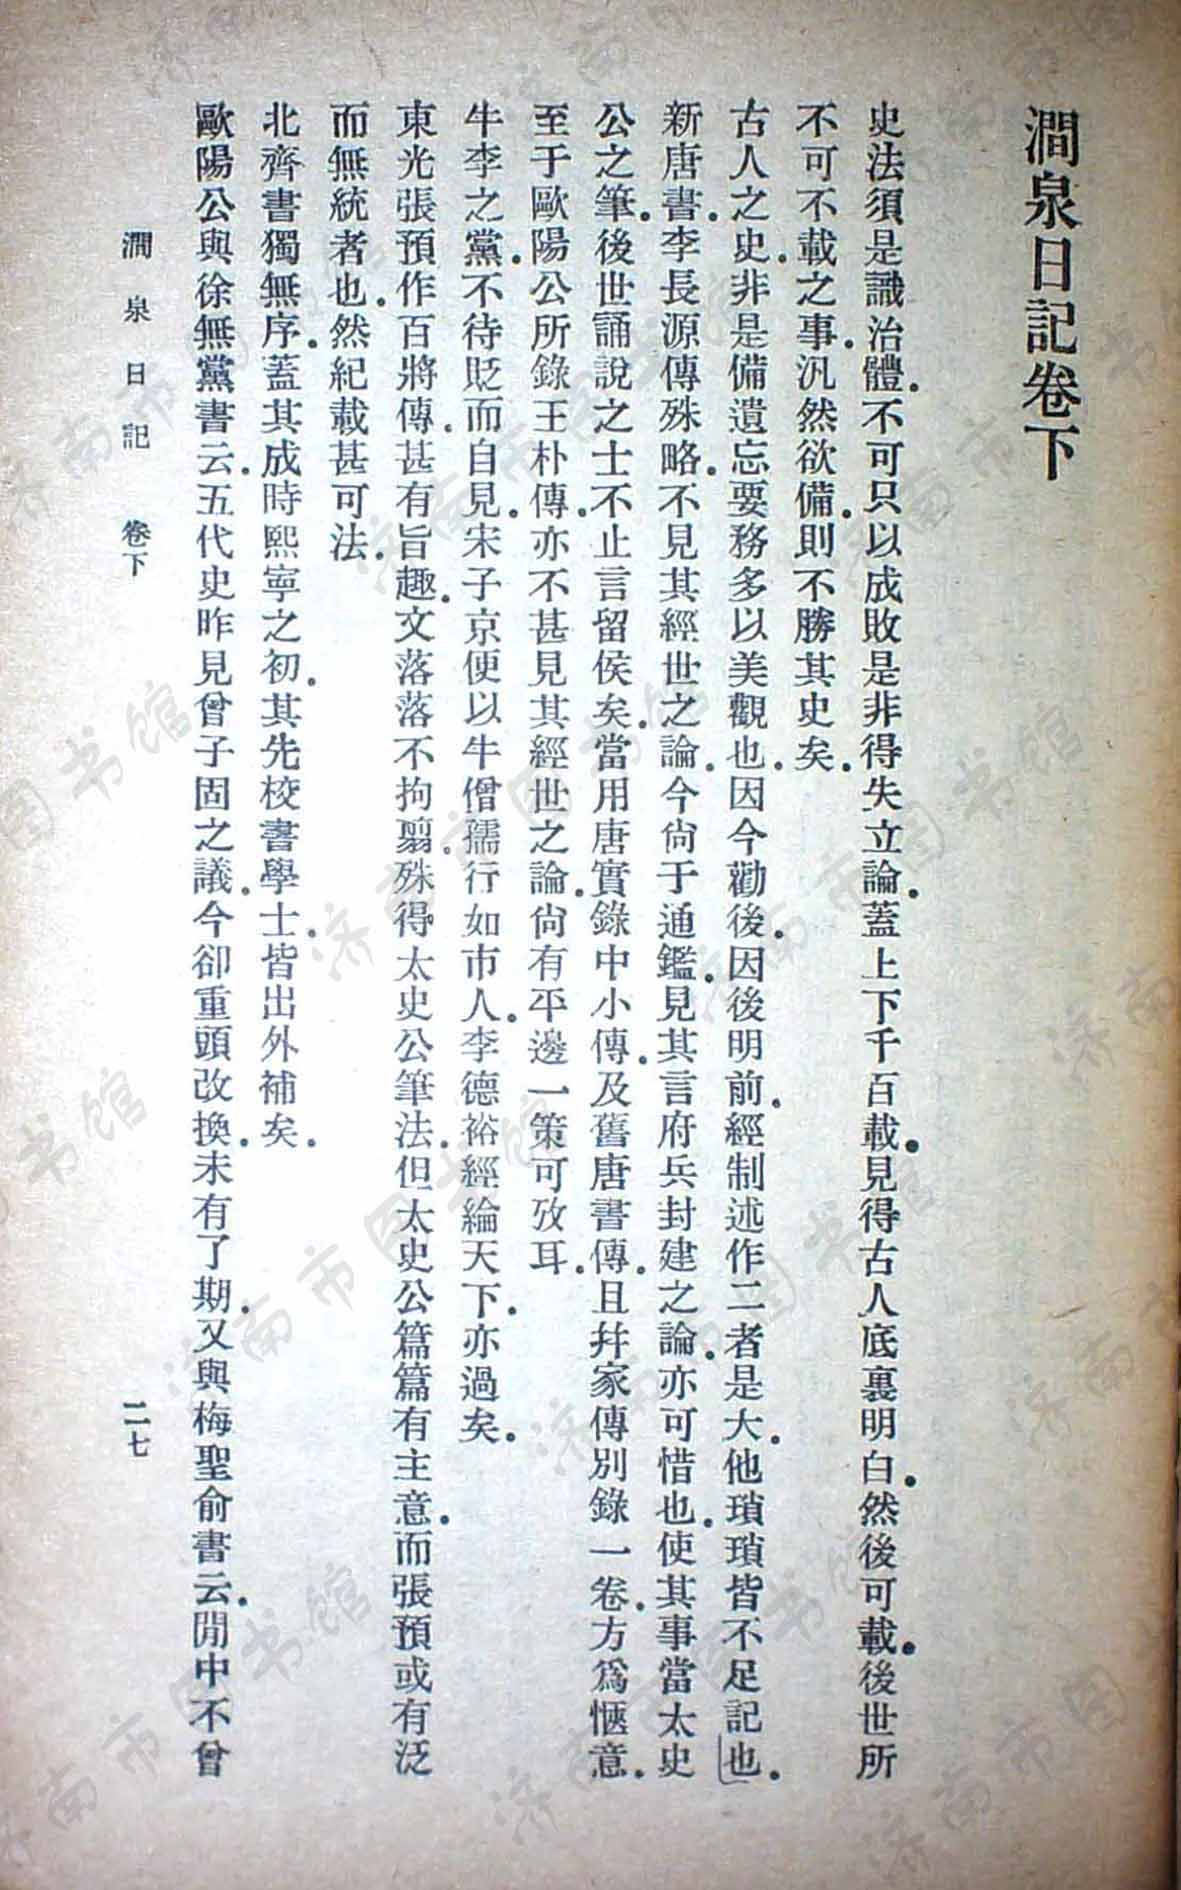 澗泉日記卷下
史法須是識治體.不可只以成敗是非得失立論.蓋上下千百載.見得古人底裏明白.然後可載.後世所
不可不載之事.汎然欲備.則不勝其史矣.
古人之史.非是備遺忘要務多以美觀也.因今勸後.因後明前.經制述作二者是大.他瑣瑣皆不足記也.
新唐書.李長源傳殊略.不見其經世之論.今尙于通鑑.見其言府兵封建之論.亦可惜也.使其事當太史
公之筆.後世誦說之士不止言留侯矣.當用唐實錄中小傳.及舊唐書傳.且幷家傳別錄一卷.方爲愜意.
至于歐陽公所錄王朴傳.亦不甚見其經世之論.尙有平邊一策可攷耳.
牛李之黨.不待貶而自見.宋子京便以牛僧孺行如市人.李德裕經綸天下.亦過矣.
東光張預作百將傳.甚有旨趣.文落落不拘翦.殊得太史公筆法.但太史公篇篇有主意.而張預或有泛
而無統者也.然紀載甚可法.
北齊書獨無序.蓋其成時熙寧之初.其先校書學士.皆出外補矣.
歐陽公與徐無黨書云.五代史昨見曾子固之議.今卻重頭改換.未有了期.又與梅聖俞書云.閒中不曾
澗泉日記 卷下 二七
济南市图书馆